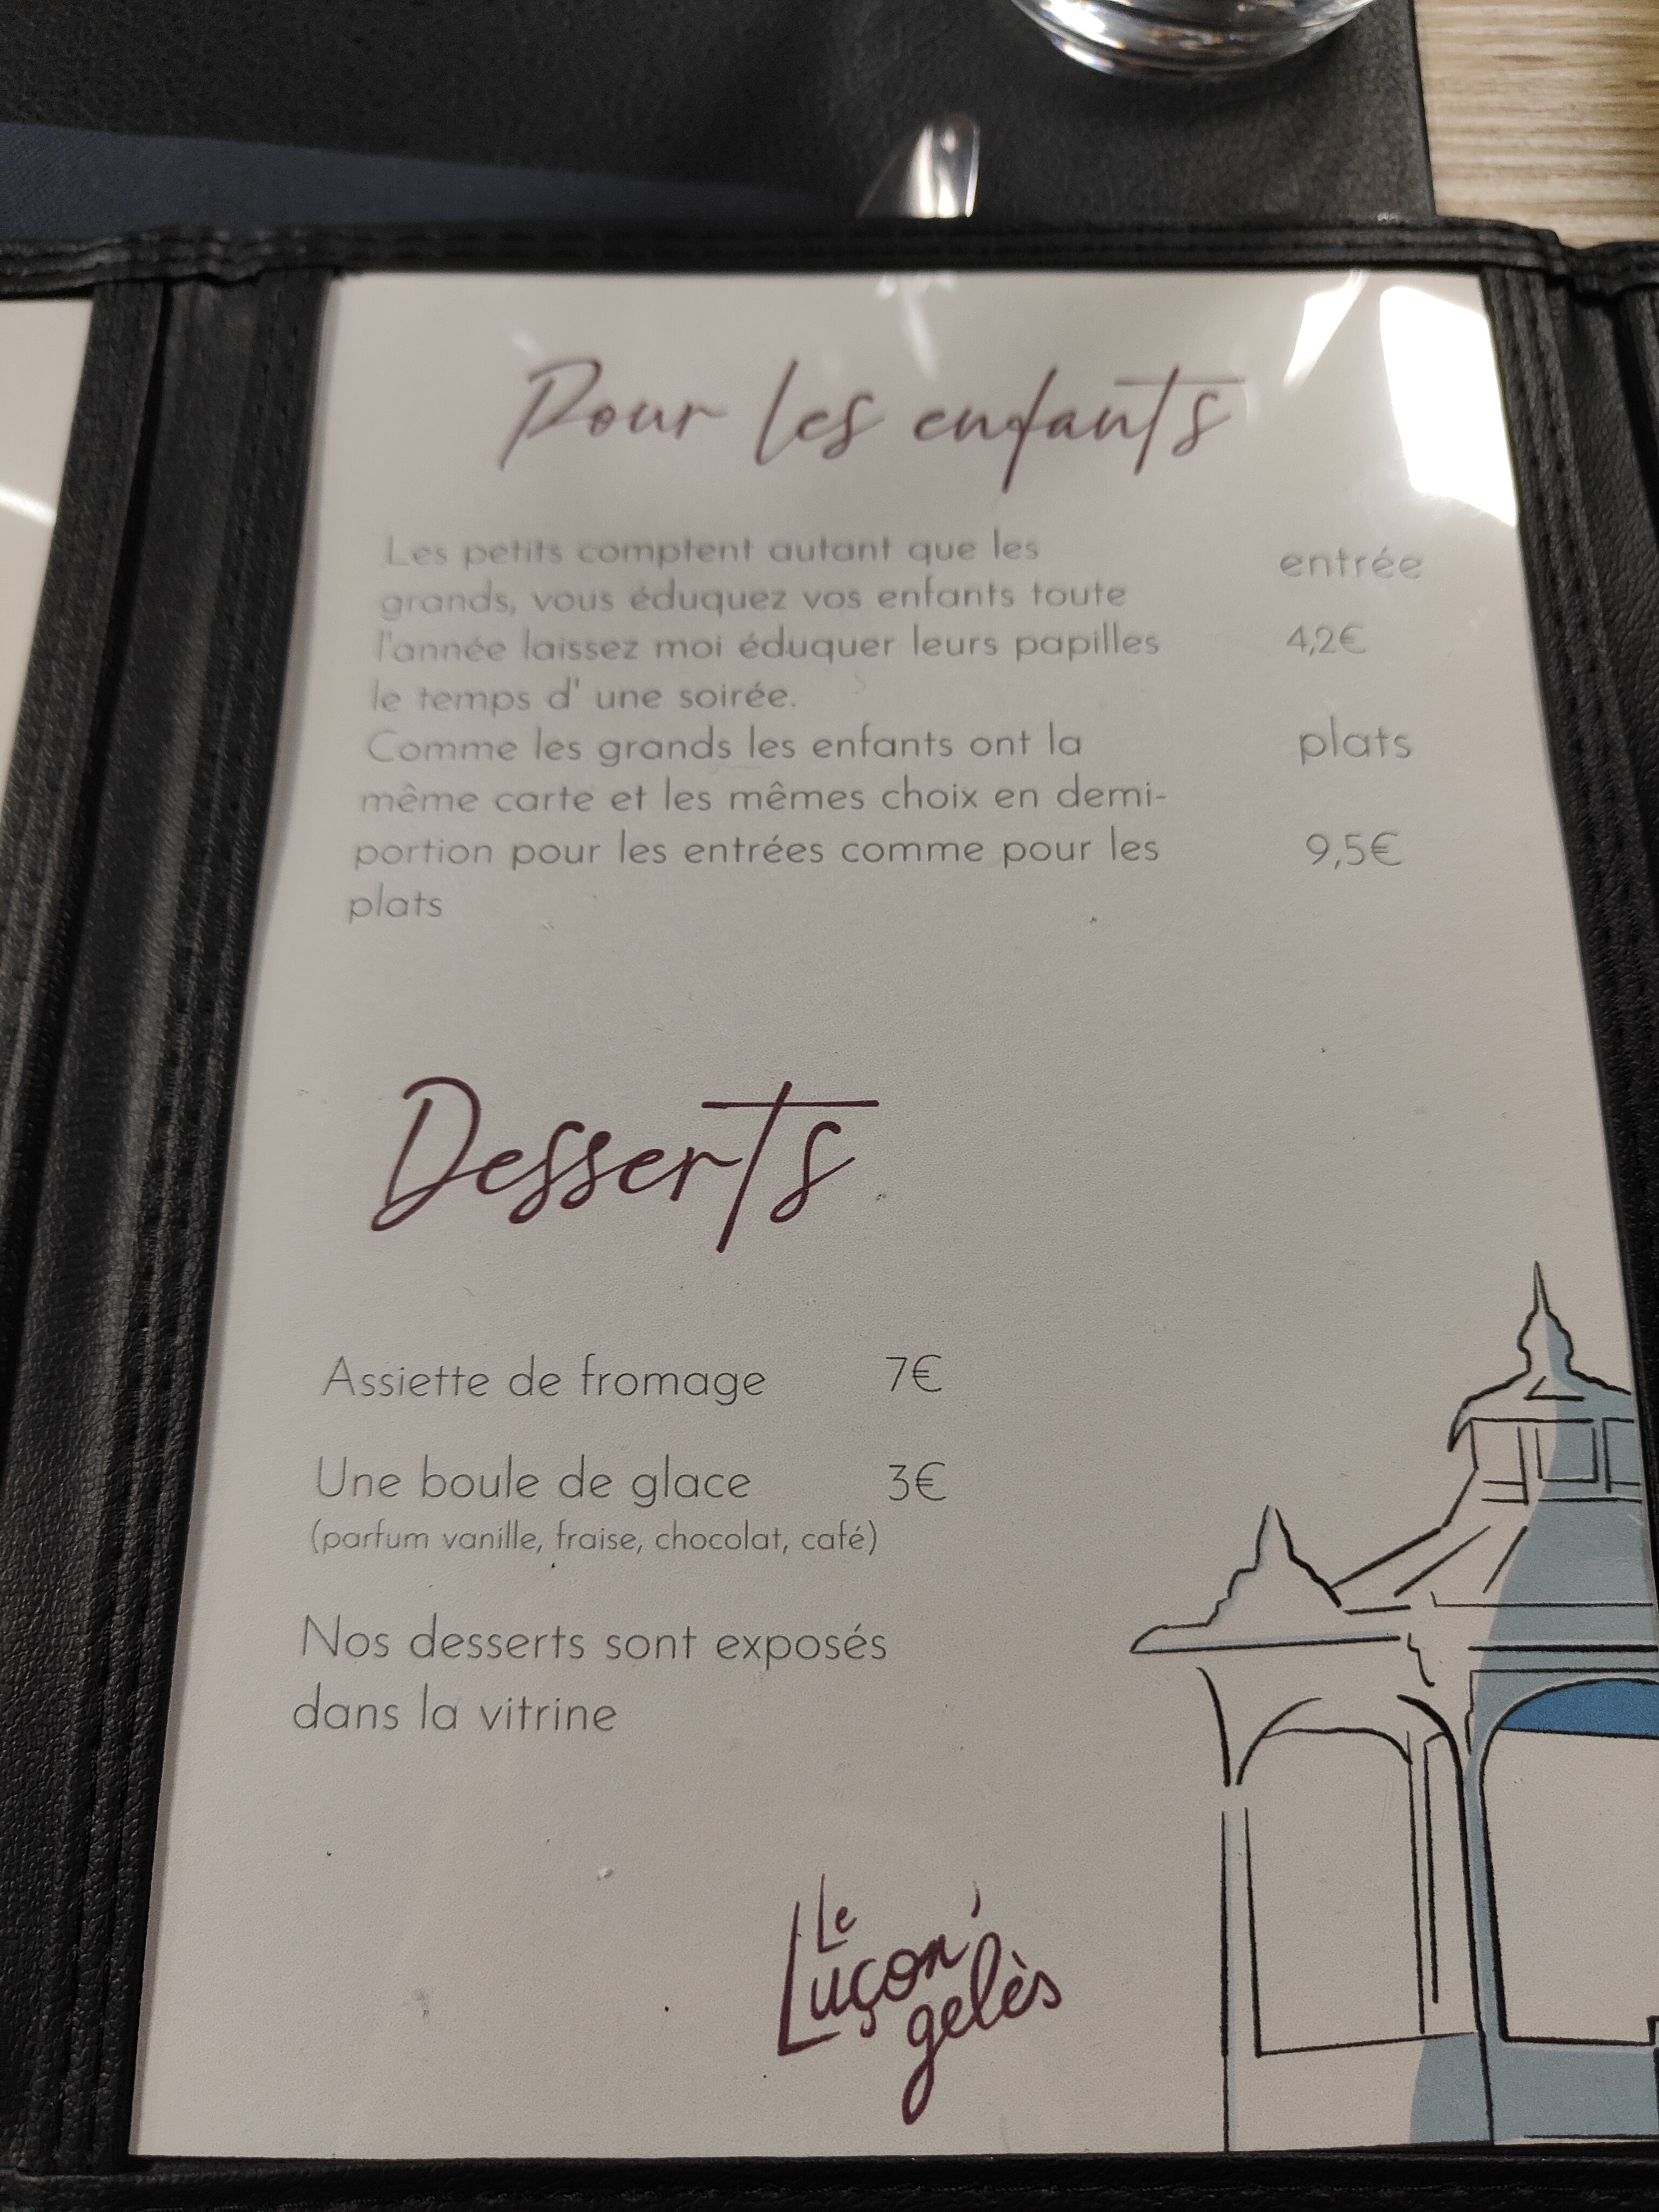 Pour les enfants
Les petits comptent autant que les
grands, vous éduquez vos enfants toute
l'année laissez moi éduquer leurs papilles
le temps d' une soirée.
Comme les grands les enfants ont la
même carte et les mêmes choix en demi-
portion pour les entrées comme pour les
plats
entrée
4,2€
plats
9,5€
Desserts
Assiette de fromage 7€
Une boule de glace 3€
(parfum vanille, fraise, chocolat, café)
Nos desserts sont exposés
dans la vitrine
Le
Luçon'
gelès